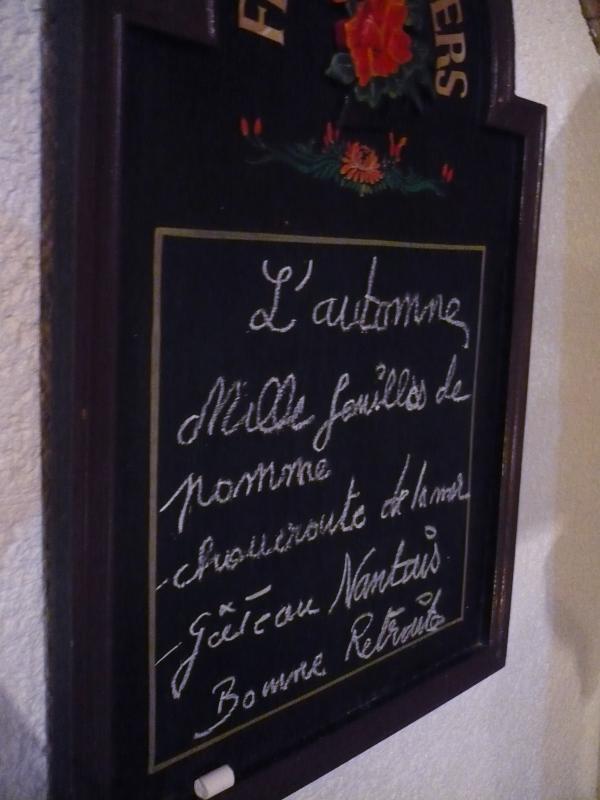 ERS
L'automne
Mille feuilles de
pomme
-choucroute de la mer
-gâteau Nantais
Bonne Retraite